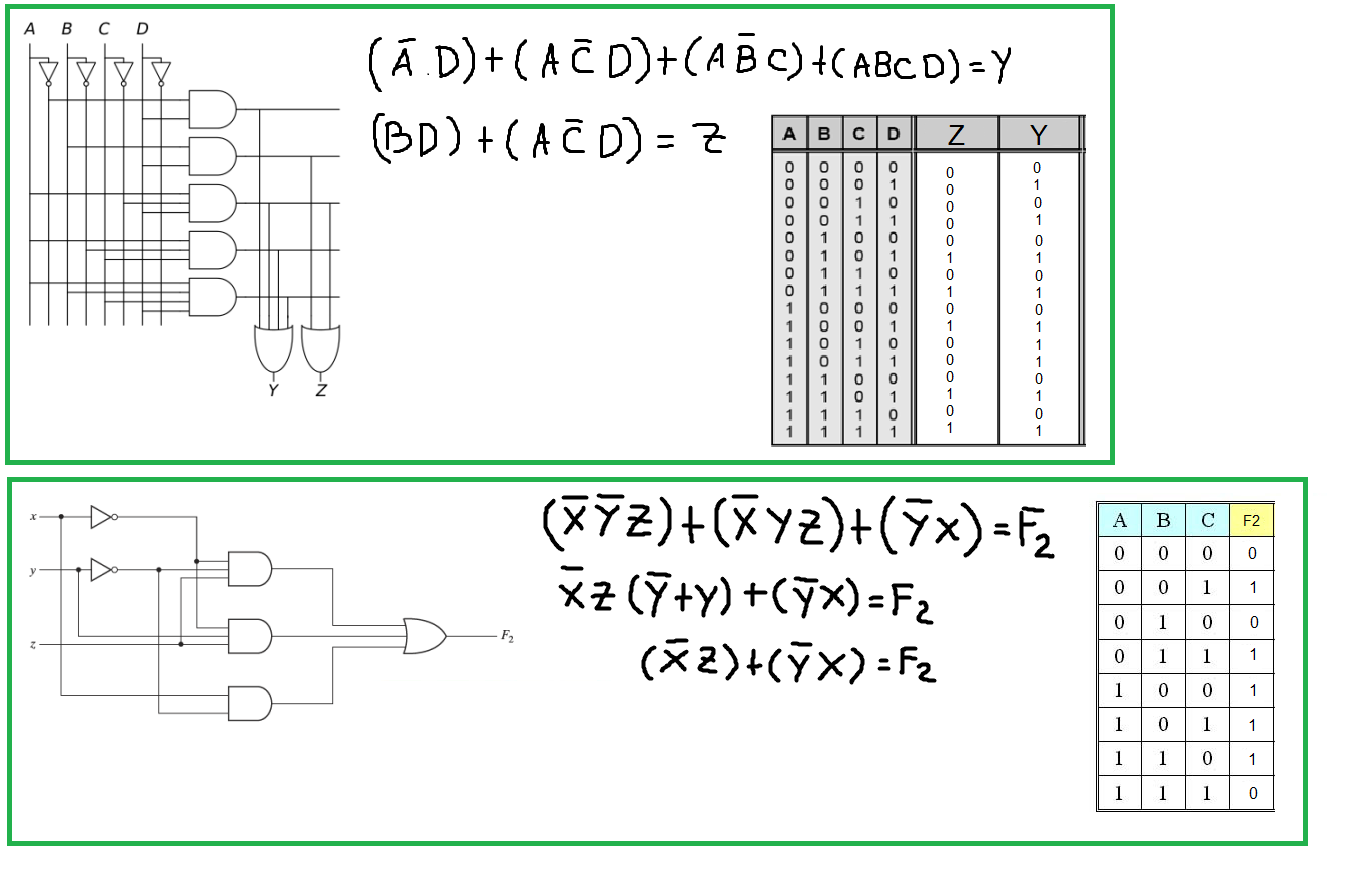 A B C D
(Ā.D)+(A C̄ D)+(A B̄ C)+(ABCD)=Y
(BD)+(A C̄ D)=Z
A B C D Z Y
0 0 0 0 0 0
0 0 0 1 0 1
0 0 1 0 0 0
0 0 1 1 0 1
0 1 0 0 0 0
0 1 0 1 1 1
0 1 1 0 0 0
0 1 1 1 1 1
1 0 0 0 0 0
1 0 0 1 1 1
1 0 1 0 0 1
1 0 1 1 0 1
1 1 0 0 0 0
1 1 0 1 1 1
1 1 1 0 0 0
1 1 1 1 1 1
Y Z
x
y
z
F2
(X̄ȲZ)+(X̄YZ)+(ȲX)=F2
X̄Z(Ȳ+Y)+(ȲX)=F2
(X̄Z)+(ȲX)=F2
A B C F2
0 0 0 0
0 0 1 1
0 1 0 0
0 1 1 1
1 0 0 1
1 0 1 1
1 1 0 1
1 1 1 0